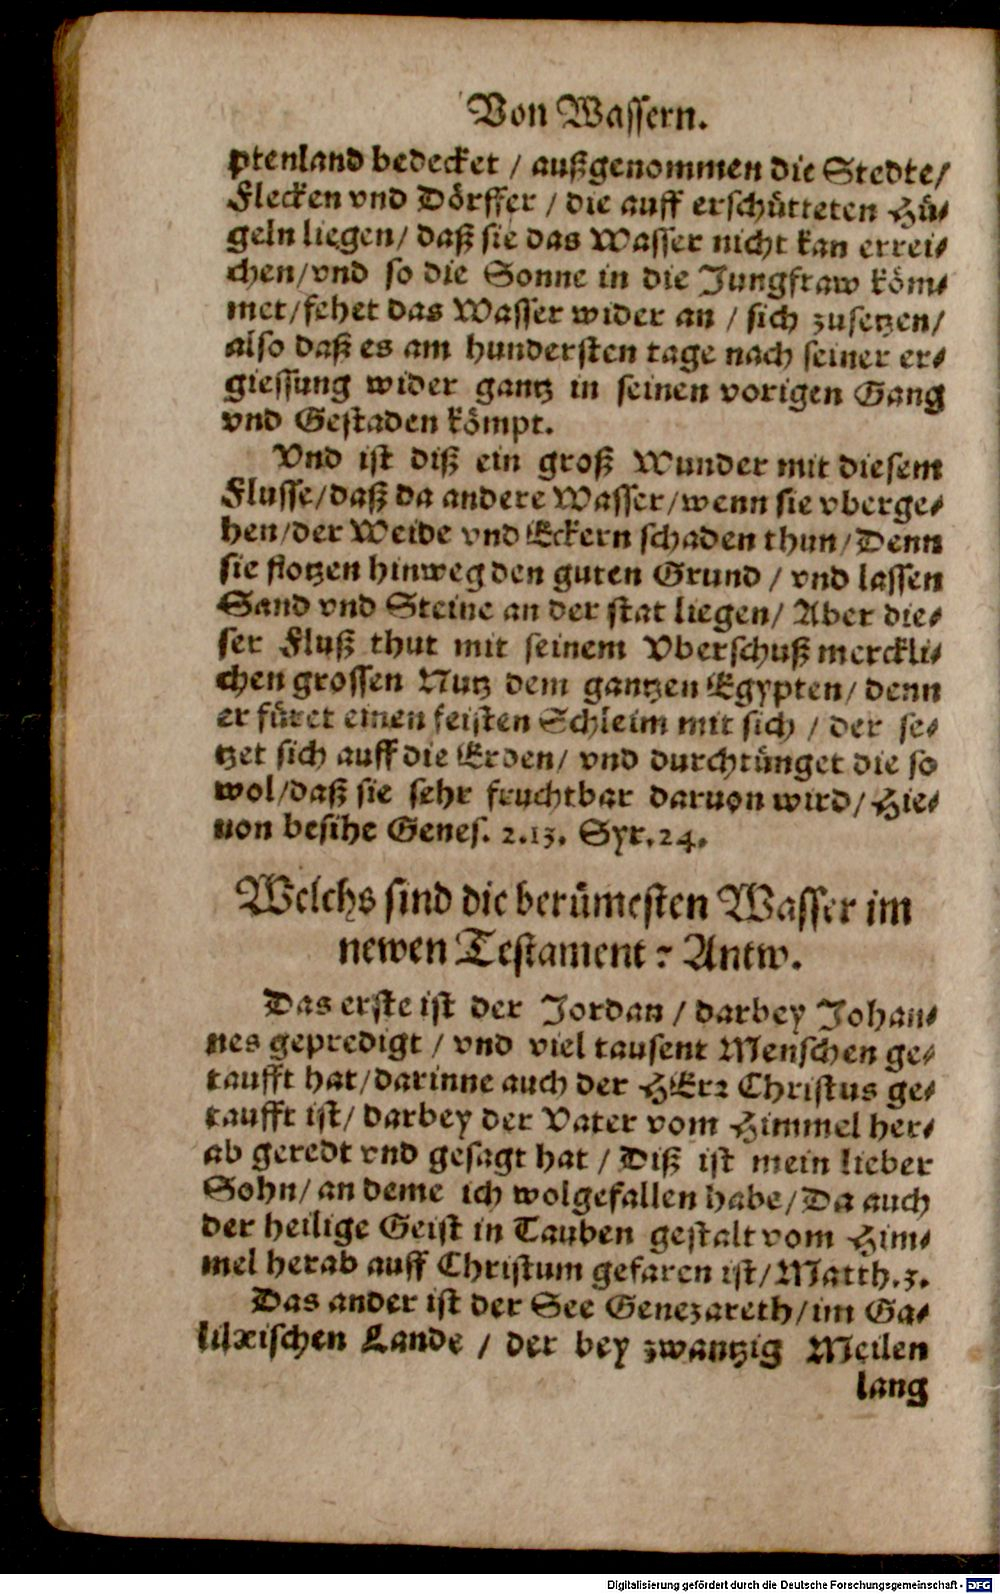 Von Wassern.
ptenland bedecket / außgenommen die Stedte/
Flecken vnd Dörffer / die auff erschütteten Hü-
geln liegen/ daß sie das Wasser nicht kan errei-
chen/vnd so die Sonne in die Jungfraw köm-
met/fehet das Wasser wider an / sich zusetzen/
also daß es am hundersten tage nach seiner er-
giessung wider gantz in seinen vorigen Gang
vnd Gestaden kömpt.
Vnd ist diß ein groß Wunder mit diesem
Flusse/daß da andere Wasser/wenn sie vberge-
hen/der Weide vnd Eckern schaden thun/Denn
sie flötzen hinweg den guten Grund / vnd lassen
Sand vnd Steine an der stat liegen/ Aber die-
ser Fluß thut mit seinem Vberschuß merckli-
chen grossen Nutz dem gantzen Egypten/ denn
er füret einen feisten Schleim mit sich / der se-
tzet sich auff die Erden/ vnd durchtünget die so
wol/daß sie sehr fruchtbar daruon wird/Hie-
uon besihe Genes. 2.13. Syr.24.
Welchs sind die berümesten Wasser im
newen Testament? Antw.
Das erste ist der Jordan / darbey Johan-
nes gepredigt / vnd viel tausent Menschen ge-
taufft hat/darinne auch der HErr Christus ge-
taufft ist/ darbey der Vater vom Himmel her-
ab geredt vnd gesagt hat / Diß ist mein lieber
Sohn/ an deme ich wolgefallen habe/Da auch
der heilige Geist in Tauben gestalt vom Him-
mel herab auff Christum gefaren ist/Matth.3.
Das ander ist der See Genezareth/im Ga-
lilæischen Lande / der bey zwantzig Meilen
lang
Digitalisierung gefördert durch die Deutsche Forschungsgemeinschaft - DFG